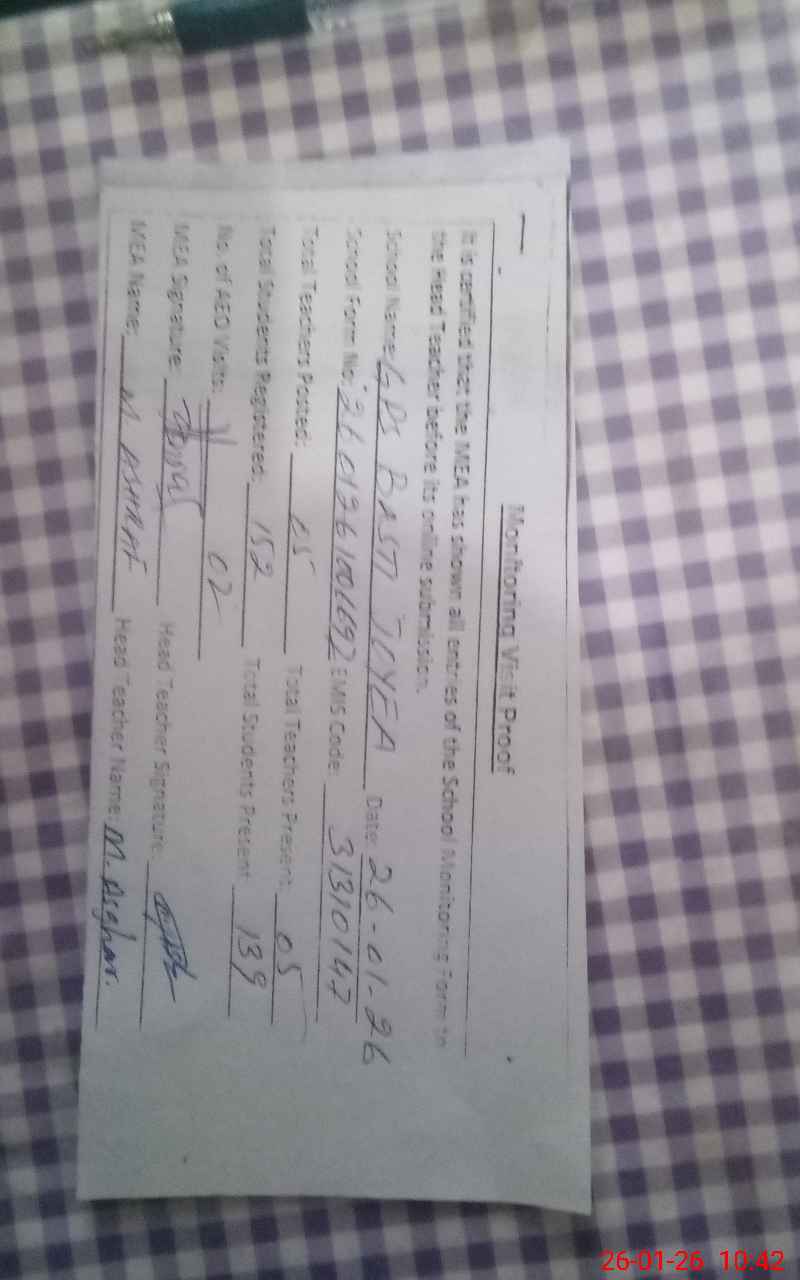 Monitoring Visit Proof
It is certified that the MEA has shown all entries of the School Monitoring Form to
the Head Teacher before its online submission.
School Name: GPS BASTI Date: 26-01-26
School Form No: EMIS Code: 31310147
Total Teachers Posted: 05 Total Teachers Present: 05
Total Students Registered: 152 Total Students Present: 139
No. of AEO Visits: 02
MEA Signature: Head Teacher Signature:
MEA Name: M. ASHRAF Head Teacher Name: M. Asghar.
26-01-26 10:42